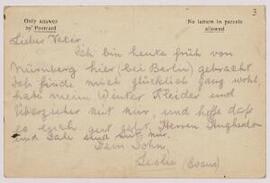 3
Only answer by Postcard
No letters in parcels allowed
Lieber Vater,
Ich bin heute früh von
Nürnberg hier (bei Berlin) gebracht
Ich finde mich glücklich ganz wohl,
habe mein Winter Kleider und
Überzieher mit mir, und hoffe daß
es euch gut geht. Herren
und sind mit mir.
Dein Sohn,
Leslie (Evans)